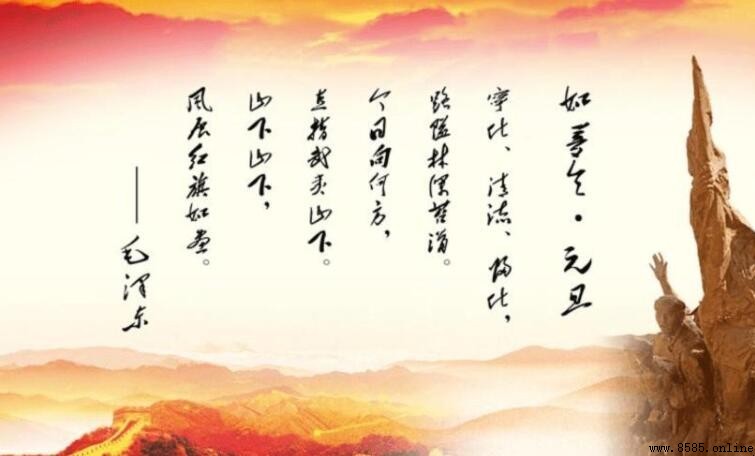 如梦令·元旦
宁化、清流、归化，
路隘林深苔滑。
今日向何方，
直指武夷山下。
山下山下，
风展红旗如画。
——毛泽东
www.8585.online